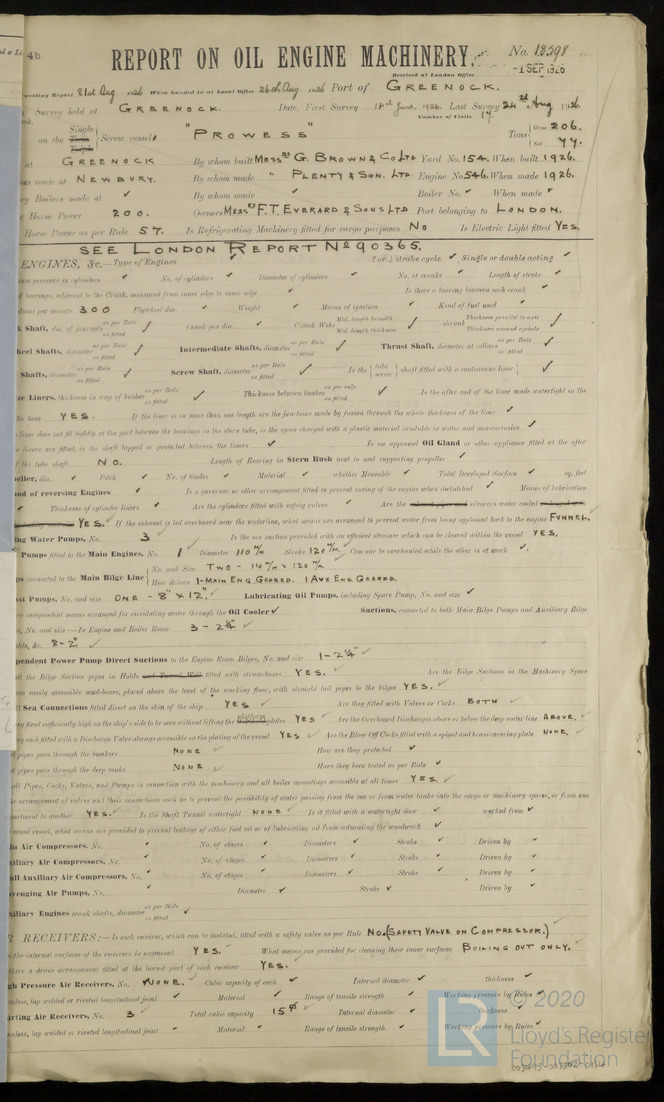 4b
REPORT ON OIL ENGINE MACHINERY.
No. 18598
Received at London Office
-1 SEP 1926
Report 21st Aug. 1926 When handed in at Local Office 26th Aug 1926 Port of GREENOCK.
Survey held at GREENOCK. Date, First Survey 1926. Last Survey 24th Aug 1926.
Number of Visits 17
on the Single Twin Triple Screw vessel "PROWESS" Tons Gross 206. Net 77.
at GREENOCK By whom built MESSRS G. BROWN & CO LTD Yard No. 154. When built 1926.
made at NEWBURY. By whom made " PLENTY & SON. LTD Engine No. 546. When made 1926.
Boilers made at ✓ By whom made ✓ Boiler No. ✓ When made ✓
Horse Power 200. Owners MESSRS F.T. EVERARD & SONS LTD Port belonging to LONDON.
Horse Power as per Rule 57. Is Refrigerating Machinery fitted for cargo purposes NO Is Electric Light fitted YES.
SEE LONDON REPORT No 90365.
ENGINES, &c.—Type of Engines ✓ 2 or 4 stroke cycle ✓ Single or double acting ✓
pressure in cylinders ✓ No. of cylinders ✓ Diameter of cylinders ✓ No. of cranks ✓ Length of stroke ✓
bearings, adjacent to the Crank, measured from inner edge to inner edge ✓ Is there a bearing between each crank ✓
per minute 300 Flywheel dia. ✓ Weight ✓ Means of ignition ✓ Kind of fuel used ✓
Shaft, dia. of journals as per Rule as fitted ✓ Crank pin dia. ✓ Crank Webs Mid. length breadth Mid. length thickness ✓ shrunk Thickness parallel to axis Thickness around eyehole ✓
Shaft, diameter as per Rule as fitted ✓ Intermediate Shafts, diameter as per Rule as fitted ✓ Thrust Shaft, diameter at collars as per Rule as fitted ✓
Shafts, diameter as per Rule as fitted ✓ Screw Shaft, diameter as per Rule as fitted ✓ Is the tube screw shaft fitted with a continuous liner ✓
Liners, thickness in way of bushes as per Rule as fitted ✓ Thickness between bushes as per rule as fitted ✓ Is the after end of the liner made watertight in the
boss YES. If the liner is in more than one length are the junctions made by fusion through the whole thickness of the liner ✓
liner does not fit tightly at the part between the bearings in the stern tube, is the space charged with a plastic material insoluble in water and non-corrosive ✓
liners are fitted, is the shaft lapped or protected between the liners ✓ Is an approved Oil Gland or other appliance fitted at the after
of the tube shaft NO. Length of Bearing in Stern Bush next to and supporting propeller ✓
dia. ✓ Pitch ✓ No. of blades ✓ Material ✓ whether Moveable ✓ Total Developed Surface ✓ sq. feet
of reversing Engines ✓ Is a governor or other arrangement fitted to prevent racing of the engine when declutched ✓ Means of lubrication
✓ Thickness of cylinder liners ✓ Are the cylinders fitted with safety valves ✓ Are the silencers water cooled
YES. If the exhaust is led overboard near the waterline, what means are arranged to prevent water from being syphoned back to the engine FUNNEL.
Water Pumps, No. 3 Is the sea suction provided with an efficient strainer which can be cleared within the vessel YES.
Pumps fitted to the Main Engines, No. 1 Diameter 110 m/m Stroke 120 m/m. Can one be overhauled while the other is at work ✓
connected to the Main Bilge Line No. and Size TWO - 110 m/m x 120 m/m
How driven 1-MAIN ENG. GEARED. 1 AUX ENG. GEARED.
Pumps, No. and size ONE - 8" x 12" Lubricating Oil Pumps, including Spare Pump, No. and size ✓
independent means arranged for circulating water through the Oil Cooler ✓ Suctions, connected to both Main Bilge Pumps and Auxiliary Bilge
No. and size:—In Engine and Boiler Room 3 - 2¼" ✓
&c. 8-2" ✓
Independent Power Pump Direct Suctions to the Engine Room Bilges, No. and size 1-2¼" ✓
all the Bilge Suction pipes in Holds and Tunnel Well fitted with strum-boxes YES. ✓ Are the Bilge Suctions in the Machinery Space
easily accessible mud-boxes, placed above the level of the working floor, with straight tail pipes to the bilges YES. ✓
Sea Connections fitted direct on the skin of the ship YES ✓ Are they fitted with Valves or Cocks BOTH ✓
fixed sufficiently high on the ship's side to be seen without lifting the platform plates YES ✓ Are the Overboard Discharges above or below the deep water line ABOVE. ✓
each fitted with a Discharge Valve always accessible on the plating of the vessel YES ✓ Are the Blow Off Cocks fitted with a spigot and brass covering plate NONE. ✓
pipes pass through the bunkers NONE ✓ How are they protected ✓
pipes pass through the deep tanks NONE ✓ Have they been tested as per Rule ✓
all Pipes, Cocks, Valves, and Pumps in connection with the machinery and all boiler mountings accessible at all times YES. ✓
arrangement of valves and their connections such as to prevent the possibility of water passing from the sea or from water tanks into the cargo or machinery spaces, or from one
compartment to another YES. ✓ Is the Shaft Tunnel watertight NONE ✓ Is it fitted with a watertight door ✓ worked from ✓
wood vessel, what means are provided to prevent leakage of either fuel oil or of lubricating oil from saturating the woodwork ✓
Air Compressors, No. ✓ No. of stages ✓ Diameters ✓ Stroke ✓ Driven by ✓
Auxiliary Air Compressors, No. ✓ No. of stages ✓ Diameters ✓ Stroke ✓ Driven by ✓
Small Auxiliary Air Compressors, No. ✓ No. of stages ✓ Diameters ✓ Stroke ✓ Driven by ✓
Scavenging Air Pumps, No. ✓ Diameter ✓ Stroke ✓ Driven by ✓
Auxiliary Engines crank shafts, diameter as per Rule as fitted ✓
RECEIVERS:—Is each receiver, which can be isolated, fitted with a safety valve as per Rule NO. (SAFETY VALVE ON COMPRESSOR.) ✓
the internal surfaces of the receivers be examined YES. ✓ What means are provided for cleaning their inner surfaces BOILING OUT ONLY. ✓
there a drain arrangement fitted at the lowest part of each receiver YES.
High Pressure Air Receivers, No. NONE. Cubic capacity of each ✓ Internal diameter ✓ thickness ✓
lap welded or riveted longitudinal joint ✓ Material ✓ Range of tensile strength ✓ Working pressure by Rules ✓
Starting Air Receivers, No. 3 Total cubic capacity 15 Internal diameter ✓ thickness ✓
lap welded or riveted longitudinal joint ✓ Material ✓ Range of tensile strength ✓ Working pressure by Rules ✓
© 2020
LR
Lloyd's Register
Foundation